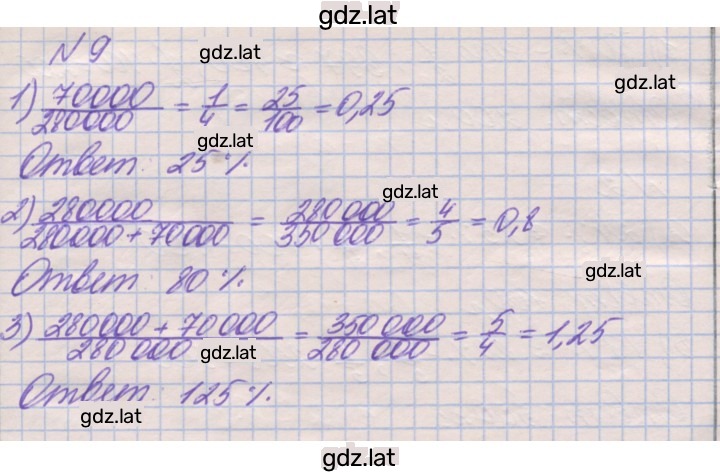 gdz.lat
N 9 gdz.lat
gdz.lat
1) 70000/280000 = 1/4 = 25/100 = 0,25
gdz.lat
Ответ: 25 %.
gdz.lat
2) 280000/280000 + 70000 = 280 000/350 000 = 4/5 = 0,8
gdz.lat
Ответ 80 %.
3) 280000 + 70 000/280 000 = 350 000/280 000 = 5/4 = 1,25
gdz.lat
Ответ: 125 %.
gdz.lat
gdz.lat